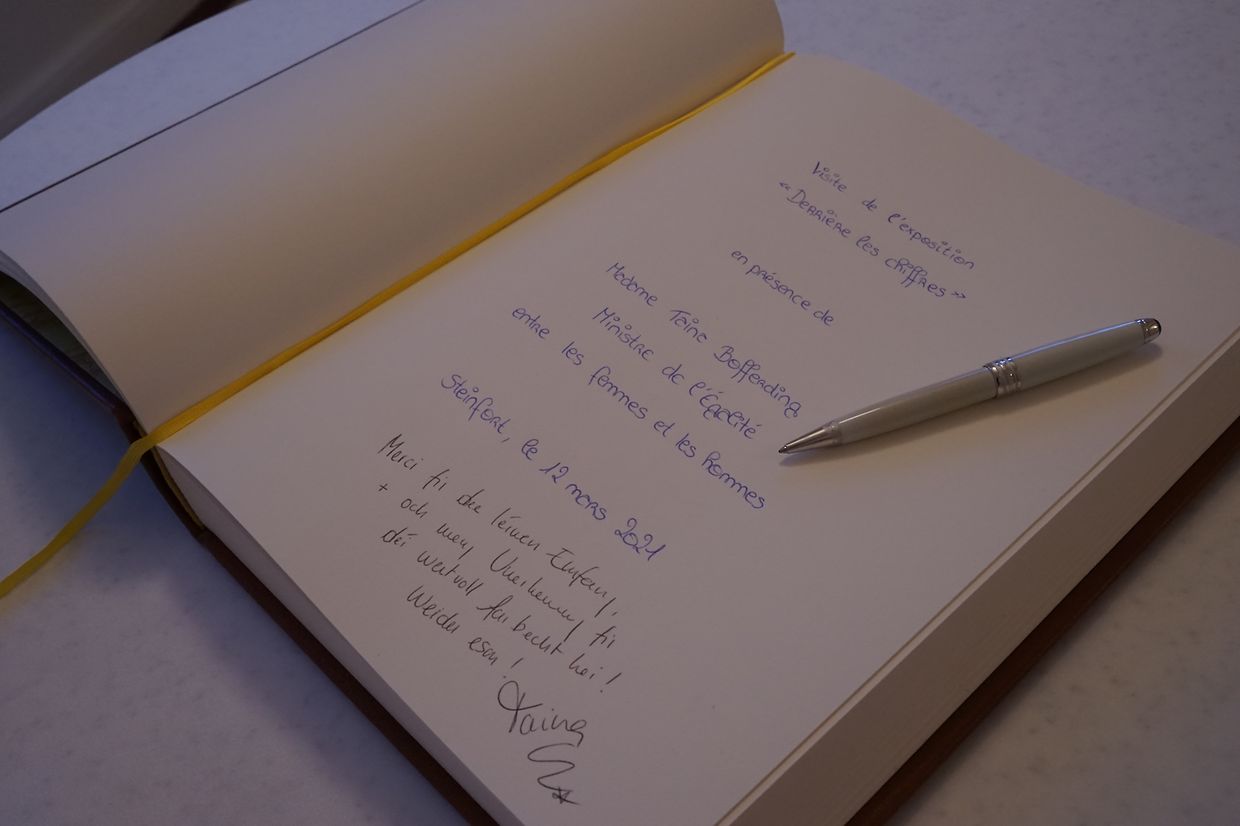 Visite de l'exposition
« Derrière les chiffres »
en présence de
Madame Taina Bofferding
Ministre de l'Égalité
entre les femmes et les hommes
Steinfort, le 12 mars 2021
Merci fir den léiwen Empfang,
+ och meng Unerkennung fir
déi wertvoll Aarbecht hei!
Weider esou!
Taina